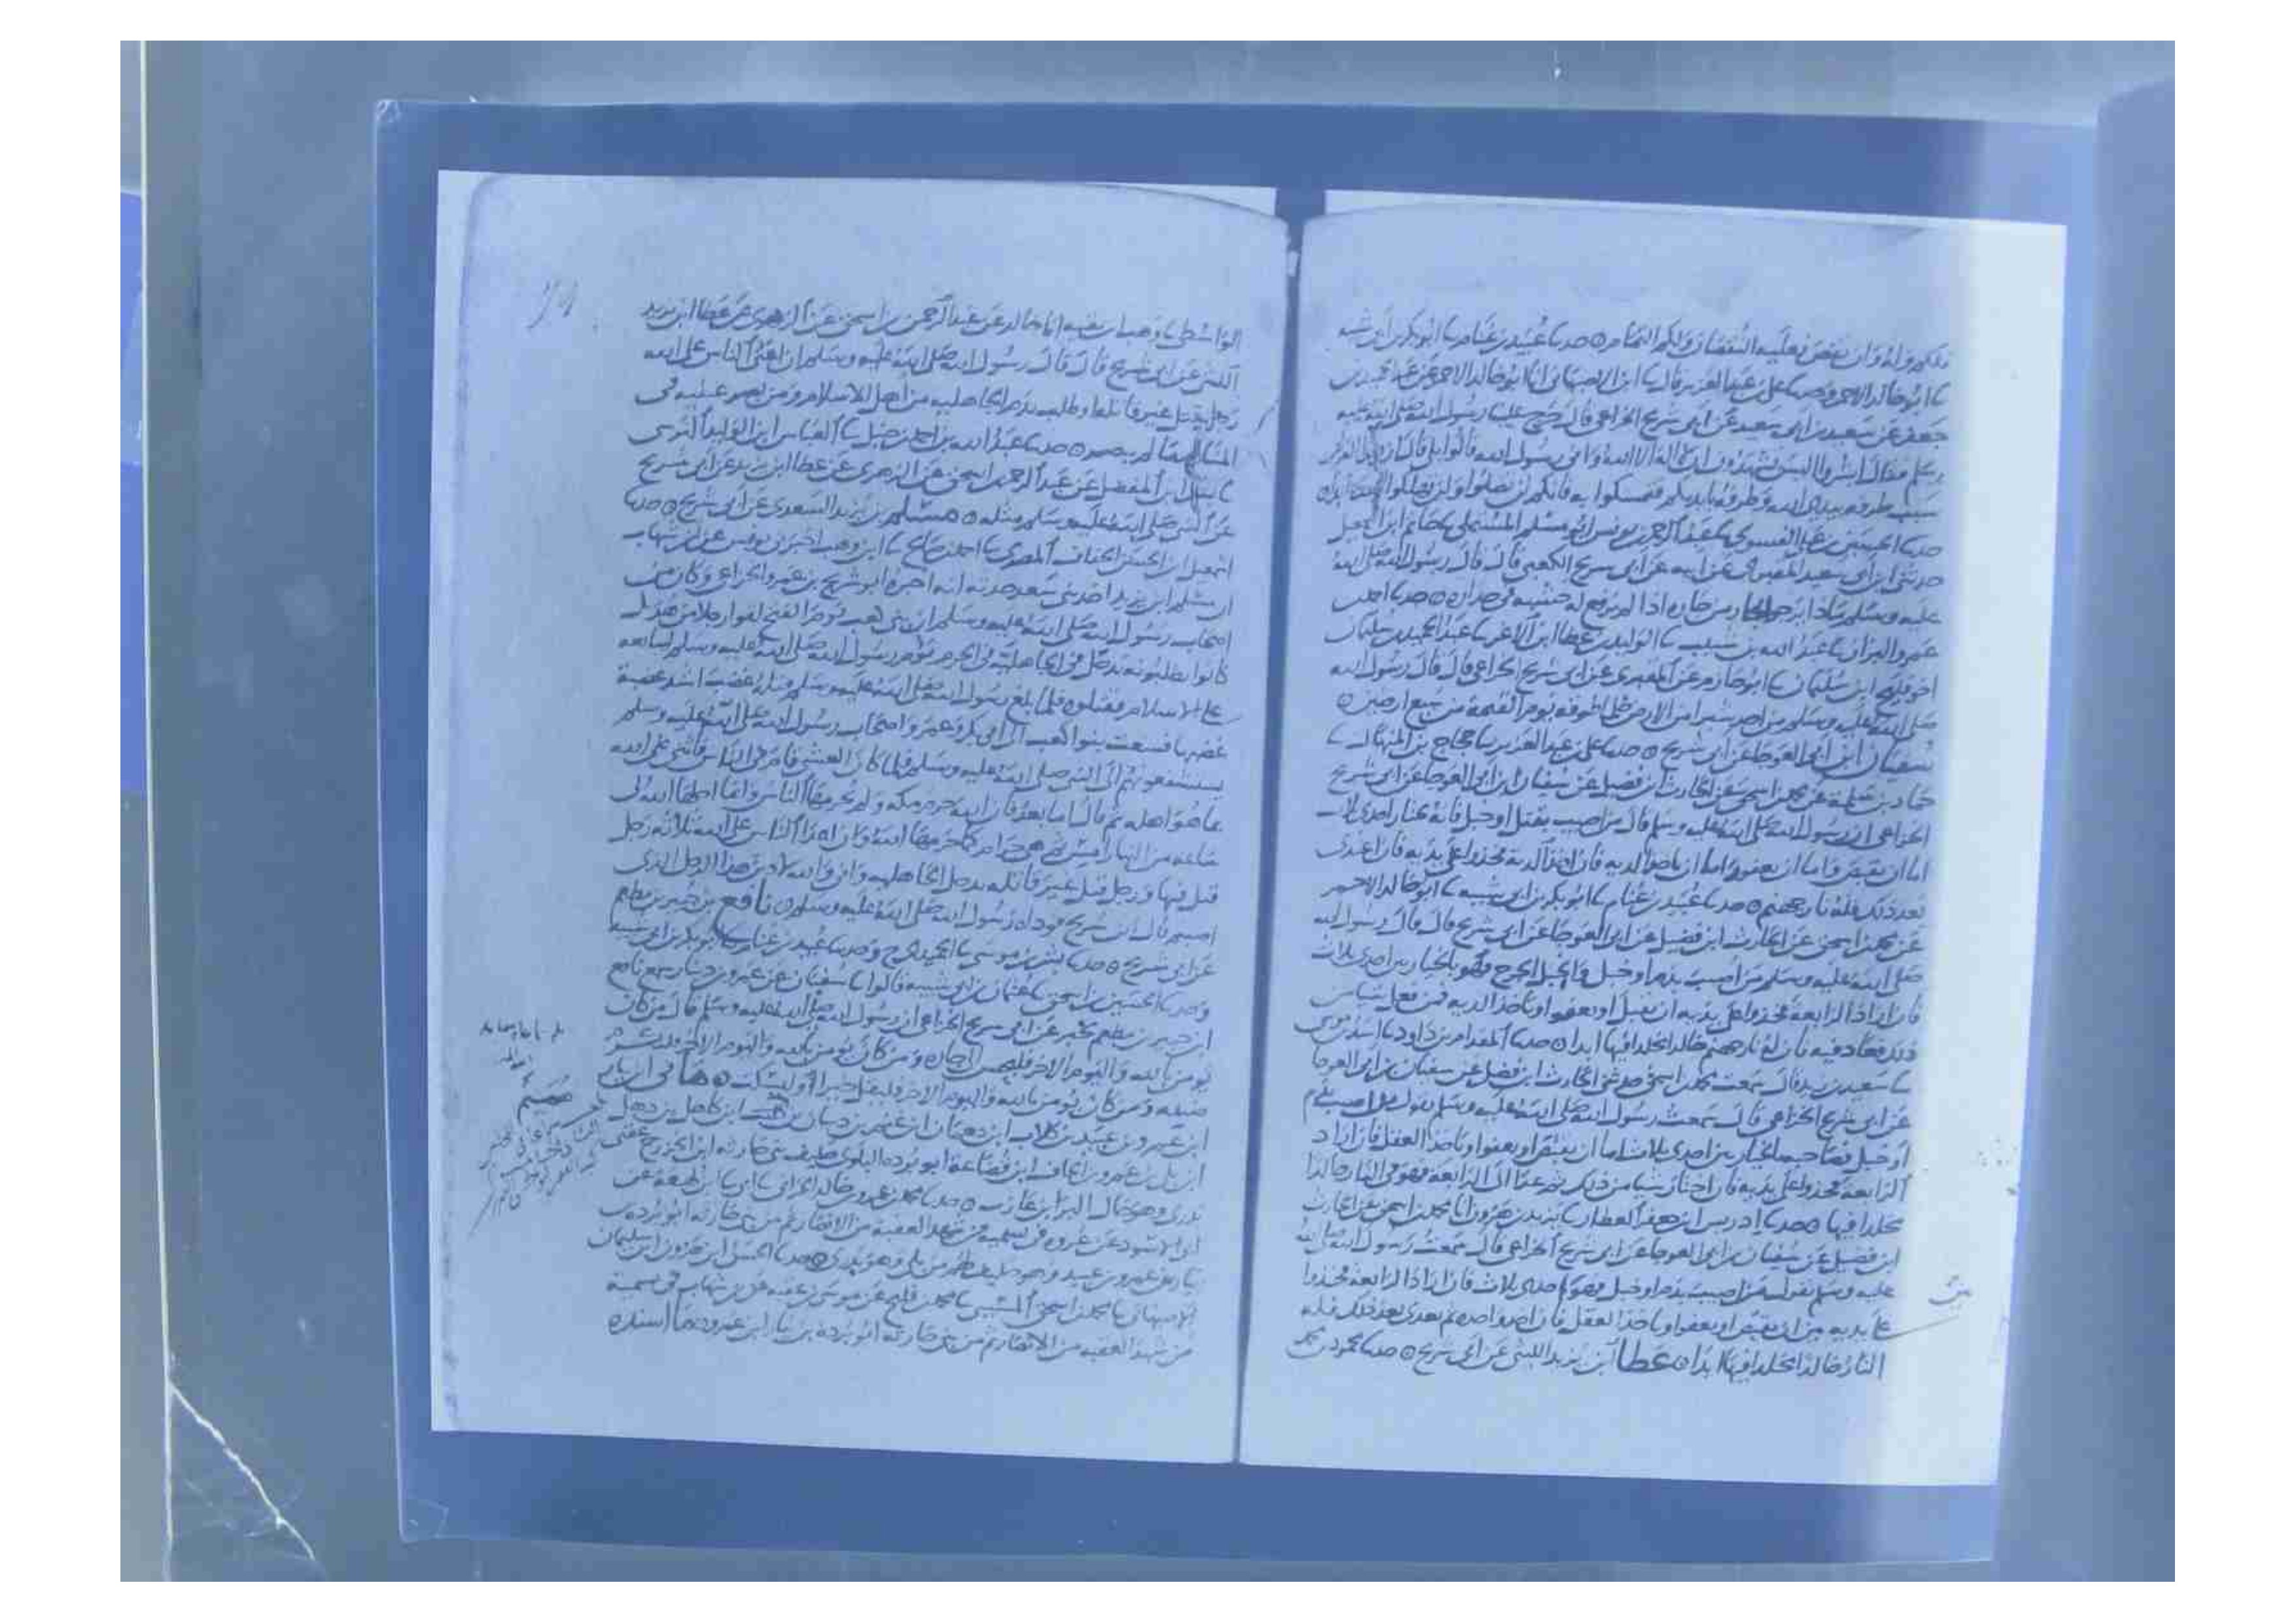 ذلكم وله وان نقص فعليه النقصان ولكم التمام ٥ حدثنا عبيد بن غنام نا ابو بكر بن ابي شيبه
نا ابو خالد الاحمر وحدثنا علي بن عبد العزيز قال نا ابن الاصبهاني انا ابو خالد الاحمر عن عبد الحميد بن
جعفر عن سعيد بن ابي سعيد عن ابي شريح الخزاعي قال خرج علينا رسول الله صلى الله عليه
وسلم فقال ابشروا اليس تشهدون ان لا اله الا الله واني رسول الله قالوا بلى قال فان هذا القران
سبب طرفه بيد الله وطرفه بايديكم فتمسكوا به فانكم لن تضلوا ولن تهلكوا بعده ابدا ٥
حدثنا الحسين بن علي الفسوي نا عبد الرحمن بن يونس ابو مسلم المستملي نا حاتم ابن اسمعيل
حدثني ابن ابي سعيد المقبري عن ابيه عن ابي شريح الكعبي قال قال رسول الله صلى الله
عليه وسلم ماذا يرجو الجار من جاره اذا لم يرفع له خشبه في جداره ٥ حدثنا احمد بن
عمرو البزار نا عبد الله بن شبيب نا الوليد بن عطا ابن الاغر نا عبد الحميد بن سليمان
اخو فليح ابن سليمان نا ابو حازم عن المقبري عن ابي شريح الخزاعي قال قال رسول الله
صلى الله عليه وسلم من اخذ شبرا من الارض ظلما طوقه يوم القيمة من سبع ارضين ٥
سفيان ابن ابي العوجا عن ابي شريح ٥ حدثنا علي بن عبد العزيز نا حجاج بن المنهال نا
حماد بن سلمة عن محمد بن اسحق عن الحارث ابن فضيل عن سفيان بن ابي العوجا عن ابي شريح
الخزاعي ان رسول الله صلى الله عليه وسلم قال من اصيب بقتل او خبل فانه يختار احدى ثلاث
اما ان يقتص واما ان يعفو واما ان ياخذ الديه فان اراد الرابعة فخذوا على يديه فان اعتدى
بعد ذلك فله نار جهنم ٥ حدثنا عبيد بن غنام نا ابو بكر بن ابي شيبه نا ابو خالد الاحمر
عن محمد بن اسحق عن الحارث ابن فضيل عن ابن ابي العوجا عن ابي شريح قال قال رسول الله
صلى الله عليه وسلم من اصيب بدم او خبل والخبل الجرح فهو بالخيار بين احدى ثلاث
فان اراد الرابعة فخذوا على يديه ان يقتل او يعفو او ياخذ الديه فمن فعل شيا من
ذلك فعاد فيه فان له نار جهنم خالدا مخلدا فيها ابدا ٥ حدثنا المقدام بن داود نا اسد بن موسى
نا سعيد بن زيد قال سمعت محمد بن اسحق حدثني الحارث ابن فضيل عن سفيان بن ابي العوجا
عن ابي شريح الخزاعي قال سمعت رسول الله صلى الله عليه وسلم يقول من اصيب بدم
او خبل فصاحبه بالخيار بين احدى ثلاث اما ان يقتص او يعفو او ياخذ العقل فان اراد
الرابعة فخذوا على يديه فان اختار شيا من ذلك ثم عدا الى الرابعة فهو في النار خالدا
مخلدا فيها ٥ حدثنا ادريس ابن جعفر العطار نا يزيد بن هرون انا محمد بن اسحق عن الحارث
ابن فضيل عن سفيان بن ابي العوجا عن ابي شريح الخزاعي قال سمعت رسول الله صلى الله
عليه وسلم يقول من اصيب بدم او خبل فهو باحدى ثلاث فان اراد الرابعة فخذوا
على يديه بين ان يقتص او يعفو او ياخذ العقل فان اخذ واحده ثم تعدى بعد ذلك فله
النار خالدا مخلدا فيها ابدا ٥ عطا ابن يزيد الليثي عن ابي شريح ٥ حدثنا محمود بن محمد
الواسطي نا وهب بن بقيه انا خالد عن عبد الرحمن بن اسحق عن الزهري عن عطا ابن يزيد
الليثي عن ابي شريح قال قال رسول الله صلى الله عليه وسلم ان اعتى الناس على الله
رجل يقتل غير قاتله او طلب بدم الجاهليه من اهل الاسلام ومن بصر عينيه في
المنام ما لم تبصر ٥ حدثنا عبد الله بن احمد بن حنبل نا العباس ابن الوليد النرسي
نا بشر ابن المفضل عن عبد الرحمن بن اسحق عن الزهري عن عطا ابن يزيد عن ابي شريح
عن النبي صلى الله عليه وسلم مثله ٥ مسلم بن يزيد السعدي عن ابي شريح ٥ حدثنا
اسمعيل ابن الحسن الخفاف المصري نا احمد بن صالح نا ابن وهب اخبرني يونس عن ابن شهاب
ان مسلم ابن يزيد احد بني سعد حدثه انه اخبره ابو شريح بن عمرو الخزاعي وكان من
اصحاب رسول الله صلى الله عليه وسلم ان بني كعب يوم الفتح لقوا رجلا من هذيل
كانوا يطلبونه بدحل في الجاهليه في الحرم يؤم رسول الله صلى الله عليه وسلم ليبايعه
على الاسلام فقتلوه فلما بلغ رسول الله صلى الله عليه وسلم قتله غضب اشد غضبة
غضبها فسعت بنوا كعب الى ابي بكر وعمر واصحاب رسول الله صلى الله عليه وسلم
يستشفعونهم الى النبي صلى الله عليه وسلم فلما كان العشي قام في الناس فاثنى على الله
بما هو اهله ثم قال اما بعد فان الله حرم مكه ولم يحرمها الناس وانما احلها الله لي
ساعه من النهار امس ثم هي حرام كما حرمها الله وان اعدا الناس على الله ثلاثه رجل
قتل فيها ورجل قتل غير قاتله بدحل الجاهليه واني والله لادين هذا الرجل الذي
اصبتم قال ابو شريح فوداه رسول الله صلى الله عليه وسلم ٥ نافع بن جبير بن مطعم
عن ابي شريح ٥ حدثنا بشر بن موسى نا الحميدي ح وحدثنا عبيد بن غنام نا ابو بكر بن ابي شيبه
وحدثنا الحسين بن اسحق نا عثمان بن ابي شيبه قالوا نا سفيان عن عمرو بن دينار سمع نافع
ابن جبير بن مطعم يخبر عن ابي شريح الخزاعي ان رسول الله صلى الله عليه وسلم قال من كان
يومن بالله واليوم الاخر فليحسن الى جاره ومن كان يومن بالله واليوم الاخر فليكرم
ضيفه ومن كان يومن بالله واليوم الاخر فليقل خيرا او ليسكت ٥ هاني ابن نيار
ابن عمرو بن عبيد بن كلاب ابن دهمان ابن غنم بن ذبيان بن هميم ابن كاهل بن ذهل
ابن بلي بن عمرو بن الحاف ابن قضاعة ابو برده البلوي حليف بني حارثه ابن الخزرج عقبي
بدري وهو خال البرا ابن عازب ٥ حدثنا محمد بن عمرو بن خالد الحراني نا ابي نا ابن لهيعة عن
ابي الاسود عن عروه في تسميه من شهد العقبه من الانصار ثم من بني حارثه ابو برده بن
نيار بن عمرو بن عبيد وهو حليف لهم من بلي وهو بدري ٥ حدثنا الحسن ابن هرون ابن سليمان
الاصبهاني نا محمد بن اسحق المسيبي نا محمد بن فليح عن موسى بن عقبه عن ابن شهاب في تسمية
من شهد العقبه من الانصار ثم من بني حارثه ابو برده بن نيار ابن عمرو ٥ ما اسنده
هميم